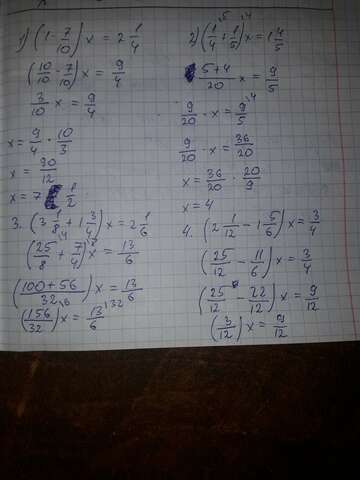 1) (1 - 7/10) x = 2 1/4
(10/10 - 7/10) x = 9/4
3/10 x = 9/4
x = 9/4 · 10/3
x = 90/12
x = 7 1/2
2) (1/4 \5 + 1/5 \4) x = 1 4/5
5+4/20 x = 9/5
9/20 · x = 9/5 \4
9/20 · x = 36/20
x = 36/20 · 20/9
x = 4
3. (3 1/8 + 1 3/4) x = 2 1/6
(25/8 \4 + 7/4 \8) x = 13/6
(100+56/32) x = 13/6
(156/32 \6) x = 13/6 \32
4. (2 1/12 - 1 5/6) x = 3/4
(25/12 - 11/6) x = 3/4
(25/12 - 22/12) x = 9/12
(3/12) x = 9/12